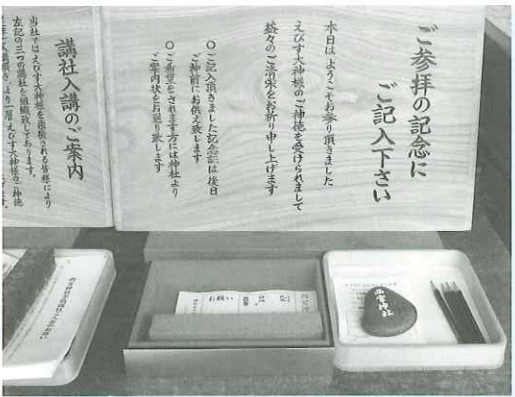 ご参拝の記念に
ご記入下さい
本日は ようこそお参り頂きました
えびす大神様のご神徳を受けられまして
益々のご清栄をお祈り申し上げます
○ご記入頂きました記念誌は後日
ご神前にお供え致します
○ご希望をされます方には神社より
ご案内状をお送り致します
講社入講のご案内
当社ではえびす大神様を崇敬される皆様により
左記の三つの講社を組織致しております。
より一層えびす大神様のご神徳
お願い
西宮神社